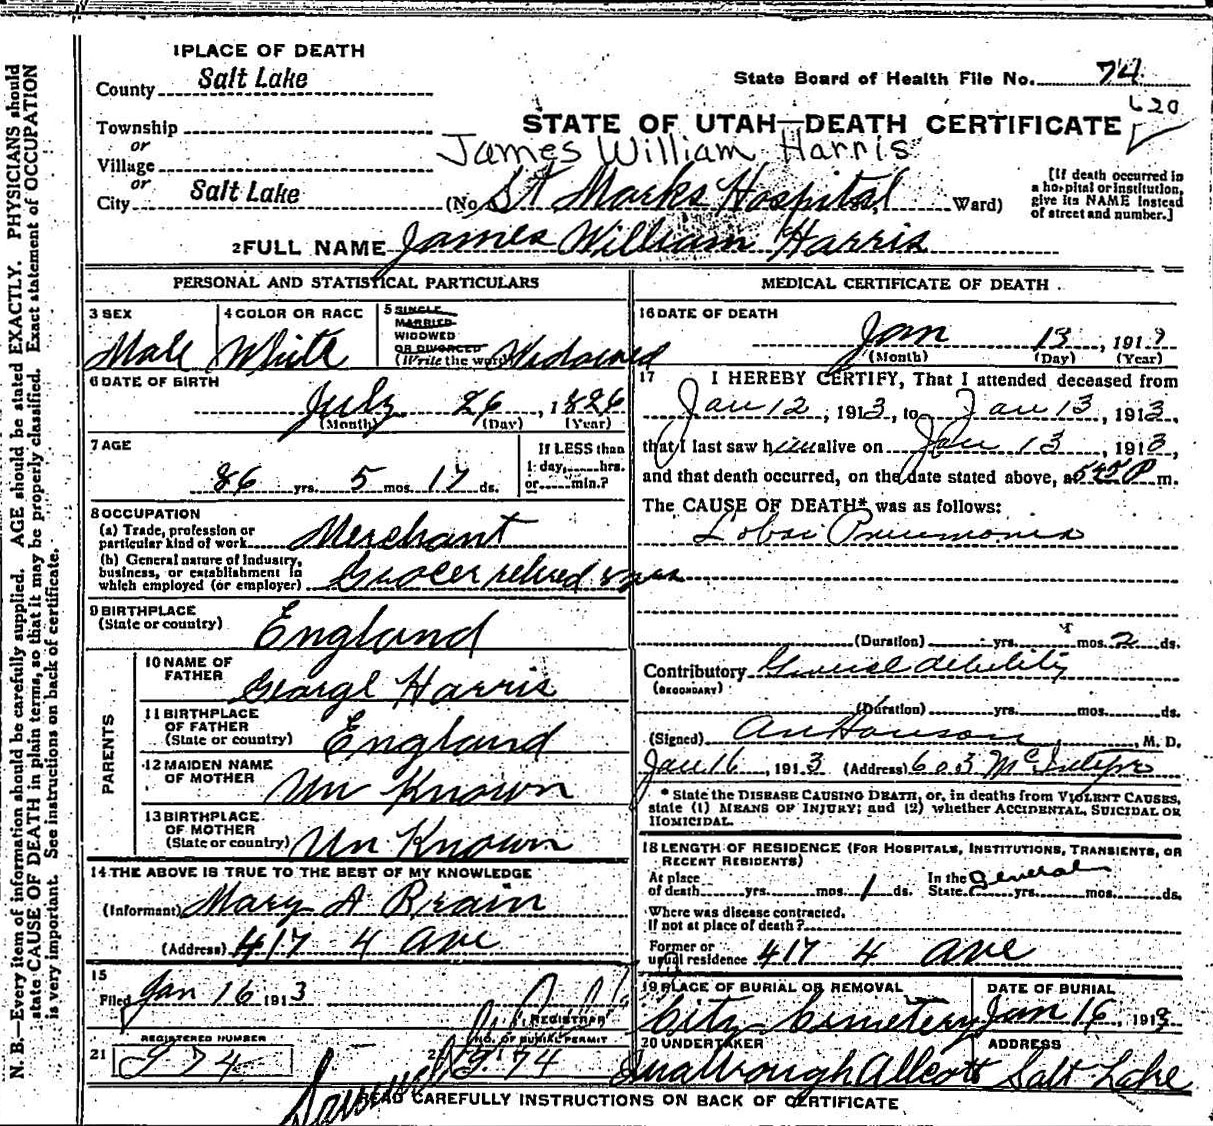 1 PLACE OF DEATH
County Salt Lake
State Board of Health File No. 74
620
Township
or
STATE OF UTAH—DEATH CERTIFICATE
James William Harris
Village
or
City Salt Lake
(No St Marks Hospital, Ward)
[If death occurred in
a hospital or institution,
give its NAME instead
of street and number.]
2 FULL NAME James William Harris
PERSONAL AND STATISTICAL PARTICULARS
3 SEX
Male
4 COLOR OR RACE
White
5 SINGLE
MARRIED
WIDOWED
OR DIVORCED
(Write the word) Widowed
6 DATE OF BIRTH
July 26, 1826
(Month) (Day) (Year)
7 AGE
86 yrs. 5 mos. 17 ds.
If LESS than
1 day, hrs.
or min.?
8 OCCUPATION
(a) Trade, profession or
particular kind of work Merchant
(b) General nature of industry,
business, or establishment in
which employed (or employer) Grocer retired
9 BIRTHPLACE
(State or country) England
PARENTS
10 NAME OF
FATHER George Harris
11 BIRTHPLACE
OF FATHER
(State or country) England
12 MAIDEN NAME
OF MOTHER Un Known
13 BIRTHPLACE
OF MOTHER
(State or country) Un Known
14 THE ABOVE IS TRUE TO THE BEST OF MY KNOWLEDGE
(Informant) Mary A Brain
(Address) 417 4 ave
15
Filed Jan 16 1913
REGISTRAR
REGISTERED NUMBER
21 974
NO. OF BURIAL PERMIT
974
MEDICAL CERTIFICATE OF DEATH
16 DATE OF DEATH
Jan 13, 191
(Month) (Day) (Year)
17 I HEREBY CERTIFY, That I attended deceased from
Jan 12, 1913, to Jan 13, 1913,
that I last saw him alive on Jan 13, 1913,
and that death occurred, on the date stated above, at 545 P m.
The CAUSE OF DEATH* was as follows:
Lobar Pneumonia
(Duration) yrs. mos. 2 ds.
Contributory General debility
(SECONDARY)
(Duration) yrs. mos. ds.
(Signed) M. D.
Jan 16, 1913 (Address) 603 McIntyre
* State the DISEASE CAUSING DEATH, or, in deaths from VIOLENT CAUSES,
state (1) MEANS OF INJURY; and (2) whether ACCIDENTAL, SUICIDAL OR
HOMICIDAL.
18 LENGTH OF RESIDENCE (FOR HOSPITALS, INSTITUTIONS, TRANSIENTS, OR
RECENT RESIDENTS)
At place
of death yrs. mos. 1 ds. In the State General yrs. mos. ds.
Where was disease contracted,
If not at place of death?
Former or
usual residence 417 4 ave
19 PLACE OF BURIAL OR REMOVAL
City Cemetery
DATE OF BURIAL
Jan 16, 1913
20 UNDERTAKER
ADDRESS
Salt Lake
READ CAREFULLY INSTRUCTIONS ON BACK OF CERTIFICATE
N. B.—Every item of information should be carefully supplied. AGE should be stated EXACTLY. PHYSICIANS should
state CAUSE OF DEATH in plain terms, so that it may be properly classified. Exact statement of OCCUPATION
is very important. See instructions on back of certificate.